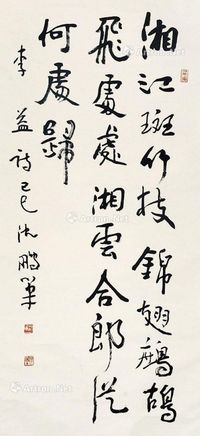 湘江斑竹枝錦翅鷓鴣
飛處處湘雲合郎從
何處歸
李益詩己巳沈鵬筆
Artron.Net